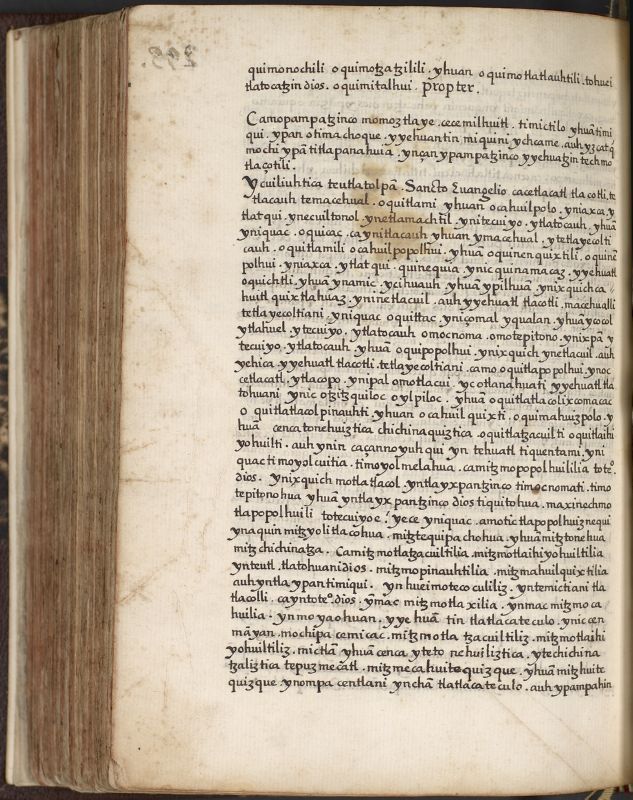 quimonochili oquimotzatzilili. yhuan oquimotlatlauhtili. tohuei
tlatocatzin dios. oquimitalhui. propter.
Camopampatzinco momoztlaye. cecemilhuitl. timictilo yhuā timi
qui. ypan otimachoque. yyehuantin miquini ychcame. auh yzcatq̄
mochi ypā titlapanahuia. ynçan ypampatzinco yyehuatzin techmo
tlaçotili.
Ycuiliuhtica teutlatolpā. Sancto Euangelio cacetlacatl tlacotli. te
tlacauh temacehual. oquitlami yhuan ocahuilpolo. yniaxca y
tlatqui. ynecuiltonol. ynetlamachtil. ynitecuiyo. ytlatocauh. yhuā
yniquac. oquicac. caynitlacauh yhuan ymacehual. ytetlayecolti
cauh. oquitlamili ocahuilpopolhui. yhuā oquinenquixtili. oquinē
polhui. yniaxca. ytlatqui. quinequia ynicquinamacaz. yyehuatl
oquichtli. yhuā ynamic. ycihuauh yhuā ypilhuā. ynixquichca
huitl quixtlahuaz. yninetlacuil. auh yyehuatl tlacotli. macehualli
tetlayecoltiani. yniquac oquittac. yniçomal yqualan. yhuā ycocol
ytlahuel. ytecuiyo. ytlatocauh omocnoma. omotepitono. ynixpā y
tecuiyo. ytlatocauh. yhuā oquipopolhui. ynixquich ynetlacuil. auh
yehica. yyehuatl tlacotli. tetlayecoltiani. camo oquitlapopolhui. ynoc
cetlacatl. ytlacopo. ynipal omotlacui. ycotlanahuati yyehuatl tla
tohuani ynic otzitzquiloc oylpiloc. yhuā oquitlatlacolixcomacac
o quitlatlacolpinauhti. yhuan ocahuilquixti. oquimahuizpolo. y
huā cenca tonehuiztica chichinaquiztica. oquitlatzacuilti oquitlaihi
yohuilti. auh ynin caçannoyuhqui yn tehuatl tiquentami. yni
quac timoyolcuitia. timoyolmelahua. camitzmopopolhuililia toteº.
dios. ynixquich motlatlacol. yntlayxpantzinco timocnomati. timo
tepitonohua yhuā yntlayxpantzinco dios tiquitohua. maxinechmo
tlapopolhuili totecuiyoe! yece yniquac. amotictlapopolhuiznequi
ynaquin mitzyolitlacohua. mitztequipachohua. yhuā mitztonehua
mitzchichinatza. Camitzmotlatzacuiltilia. mitzmotlaihiyohuiltilia
ynteutl. tlatohuanidios. mitzmopinauhtilia. mitzmahuilquixtilia
auhyntla. ypantimiqui. yn hueimotecoculiliz. yntemictiani tla
tlacolli. cayntoteº. dios. ymac mitzmotlaxilia. ynmac mitzmoca
huilia. ynmoyaohuan. yyehuā tin tlatlacateculo. ynic cen
māyan. mochipa cemicac. mitzmotlatzacuiltiliz. mitzmotlaihi
yohuiltiliz. mictlā yhuā cenca yteto nehuiliztica. ytechichina
tzaliztica tepuzmecatl. mitzmecahuitequizque. yhuā mitzhuite
quizque. ynompa centlani ynchā tlatlacateculo. auh ypampahin